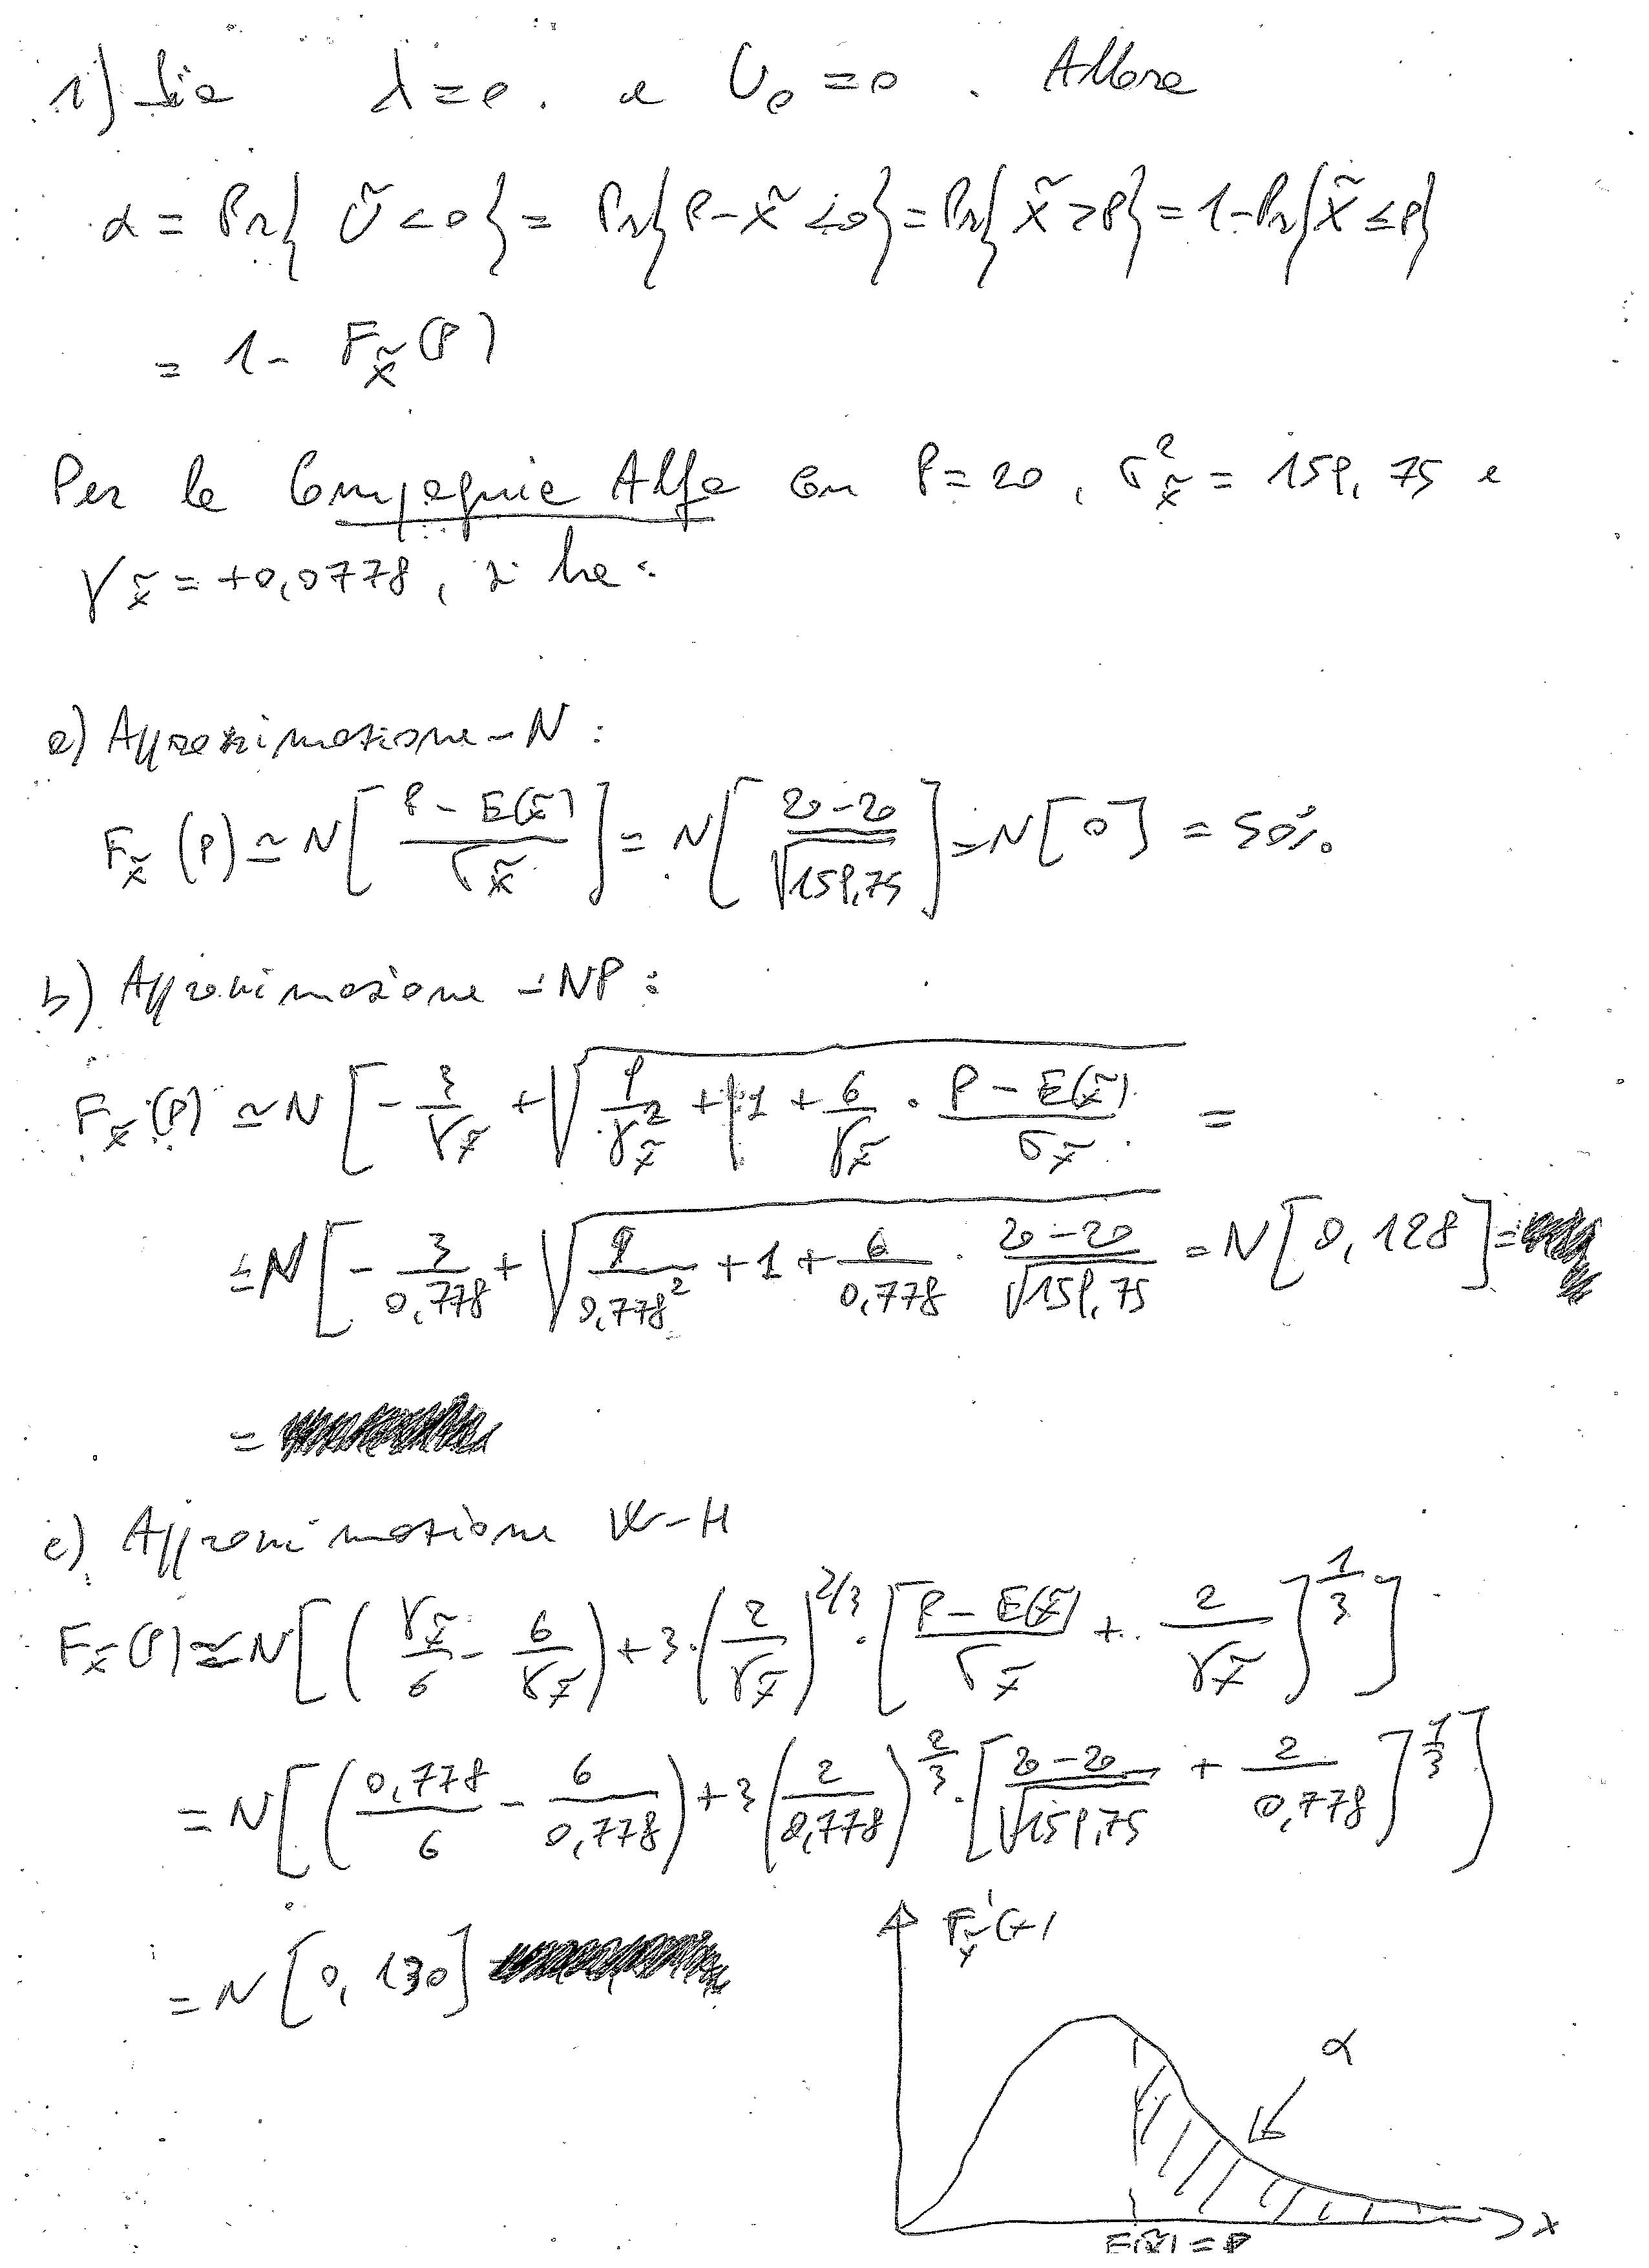 1) Sia λ=0. e U₀=0. Allora
α = Pr{Ũ<0} = Pr{P-X̃<0} = Pr{X̃>P} = 1-Pr{X̃≤P}
= 1- F_X̃(P)
Per la Compagnia Alfa con P=20, σ²_X̃ = 159,75 e
γ_X̃ = +0,0778, si ha:
a) Approssimazione-N:
F_X̃(P) ≃ N[(P-E(X̃))/σ_X̃] = N[(20-20)/√159,75] = N[0] = 50%.
b) Approssimazione-NP:
F_X̃(P) ≃ N[-3/γ_X̃ + √(9/γ²_X̃ + 1 + 6/γ_X̃ · (P-E(X̃))/σ_X̃) =
= N[-3/0,778 + √(9/0,778² + 1 + 6/0,778 · (20-20)/√159,75) = N[0,128] =
=
c) Approssimazione W-H
F_X̃(P) ≃ N[(γ_X̃/6 - 6/γ_X̃) + 3·(2/γ_X̃)^2/3 · [(P-E(X̃))/σ_X̃ + 2/γ_X̃]^1/3]
= N[(0,778/6 - 6/0,778) + 3(2/0,778)^2/3 · [(20-20)/√159,75 + 2/0,778]^1/3]
= N[0,130]
F'_X̃(x)
α
x
E(X̃) = P